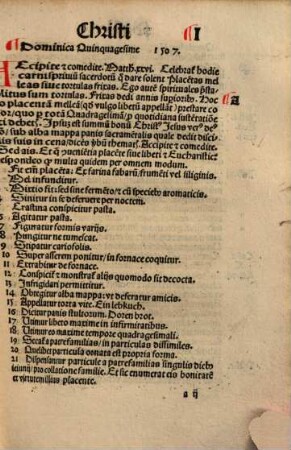 Christi
I
Dominica Quinquagesime 1507.
Accipite & comedite. Matth. xxvi. Celebrāt hodie
carnispriuiū sacerdotū q̄ dare solent placētas mel
leas siue tortulas frixas. Ego aūt spirituales
tortulas. Frixas dedi annis superioribꝰ. Hoc
A
placentā melleā (qd̄ vulgo libetū appellāt) prestare co
nor/ quo ꝑ totā Quadragesimā ꝑ quotidiana sustētatiōe
sub alba mappa panis sacramētalis quale dedit disci
pulis suis in cena/ dicēs Accipite & comedite.
Sed ais. Et q̄ ꝯueniētia placēte sine libeti & Eucharistie
respondeo ꝙ multa quidem per omnem modum.
Fit em̄ placēta. Ex farina fabarū frumēti vel siliginis.
Mel infunditur.
Mixtio fit sed sine fermēto/ & cū speciebꝰ aromaticis.
4 Sinitur in se deferuere per noctem.
Crastina conspicitur pasta.
Agitatur pasta.
7 Figuratur formis varijs.
8 Pungitur ne tumescat.
9 Stipatur curiosolis.
10 Super asserem ponitur/ in fornace coquitur.
11 Extrahitur de fornace.
12 Conspicit̄ & monstrat̄ alijs quomodo sit decocta.
13 Infrigidari permittitur.
14 Obtegitur alba mappa: vt deferatur amicis.
15 Appellatur torta vite. Ein lebkuch.
16 Dicitur panis stultorum. Doren brot.
17 Utimur libero maxime in infirmitatibus.
18 Utimur eo maxime tempore quadragesimali.
19 Secat̄ a patrefamilias/ in particulas dissimiles.
20 Quelibet particula ornata est propria forma.
21 Dispensatur particule a patrefamilias singulis
pro collatione familie. Et sic enumerat eis bonitatē
et virtutem illius placente.
a ij